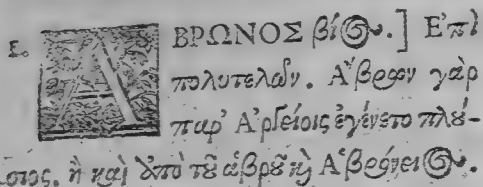 ΑΒΡΩΝΟΣ βίος.] Ἐπὶ
πολυτελῶν. Ἅβρων γὰρ
παρ' Ἀργείοις ἐγένετο πλού-
σιος, ἢ καὶ ἀπὸ τοῦ ἁβροῦ καὶ Ἁβρώνειος.